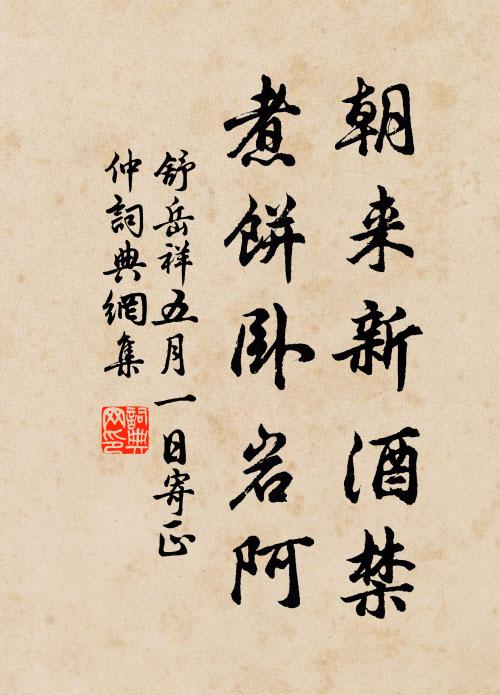 朝来新酒禁
煮餅卧岩阿
舒岳祥五月一日寄正
仲詞典網集
詞典网印